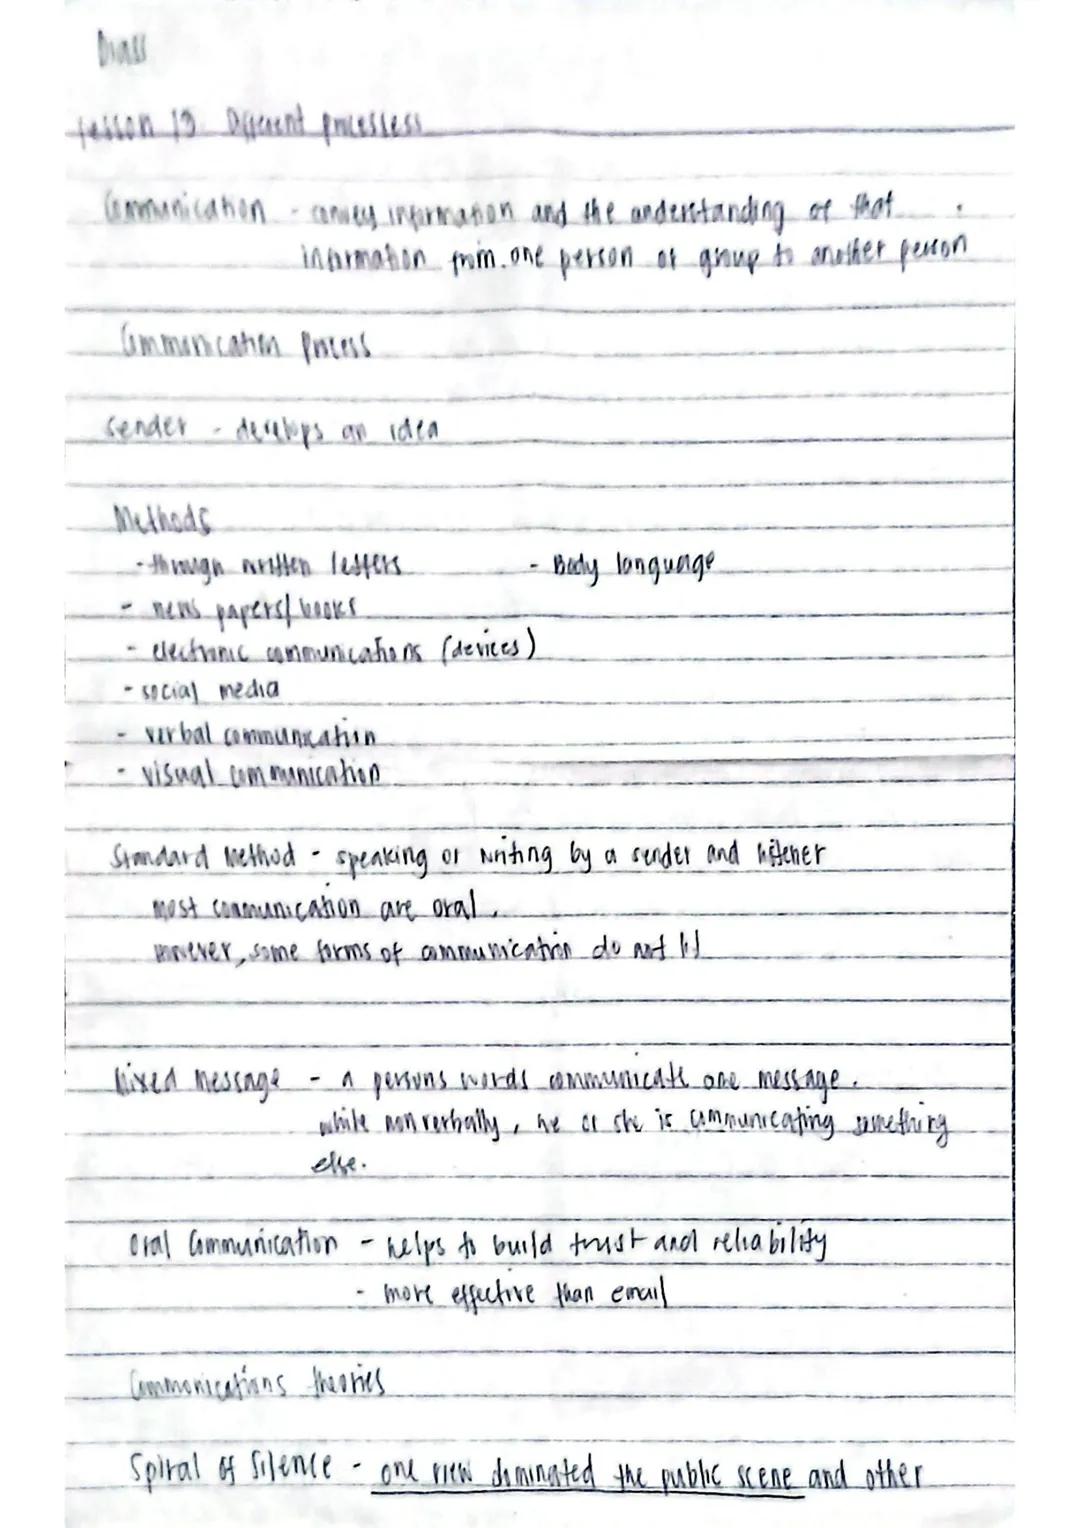 Diass
Lesson 13 Different processess
Communication - convey information and the understanding of that
information from one person or group to another person
Communication Process
Sender - develops an idea
Methods
- through written letters - Body language
- news papers/ books
- electronic communications (devices)
- social media
- verbal communication
- visual communication
Standard Method - speaking or writing by a sender and listener
most communication are oral.
however, some forms of communication do not
Mixed Message - a persons words communicate one message.
while non verbally, he or she is communicating something
else.
Oral Communication - helps to build trust and reliability
- more effective than email
Communications theories
Spiral of Silence - one view dominated the public scene and other